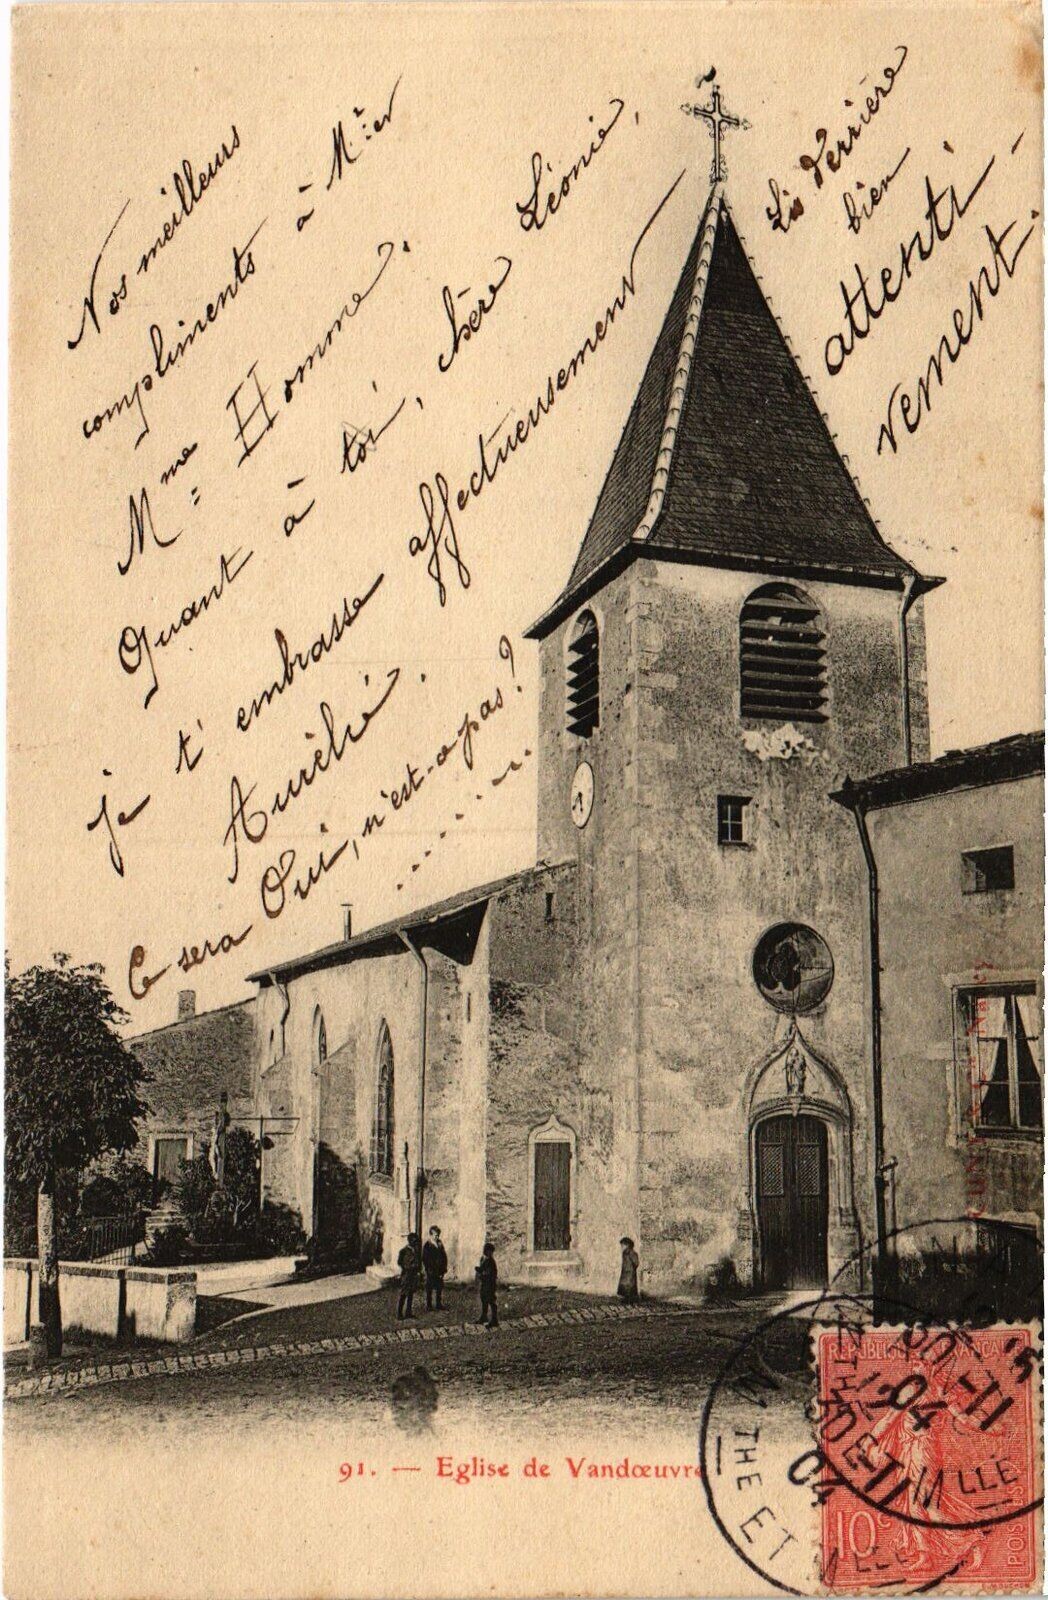 Nos meilleurs
compliments à Mr. et
Mme Homme.
Quant à toi, chère Léonie,
je t'embrasse affectueusement
Aurélie.
Ce sera Oui, n'est-ce pas?
Lis derrière
bien
attenti-
vement.
91. — Eglise de Vandœuvre
REPUBLIQUE FRANÇAISE
10c
POSTES
E. MOUCHON
04
11-
04
THE ET